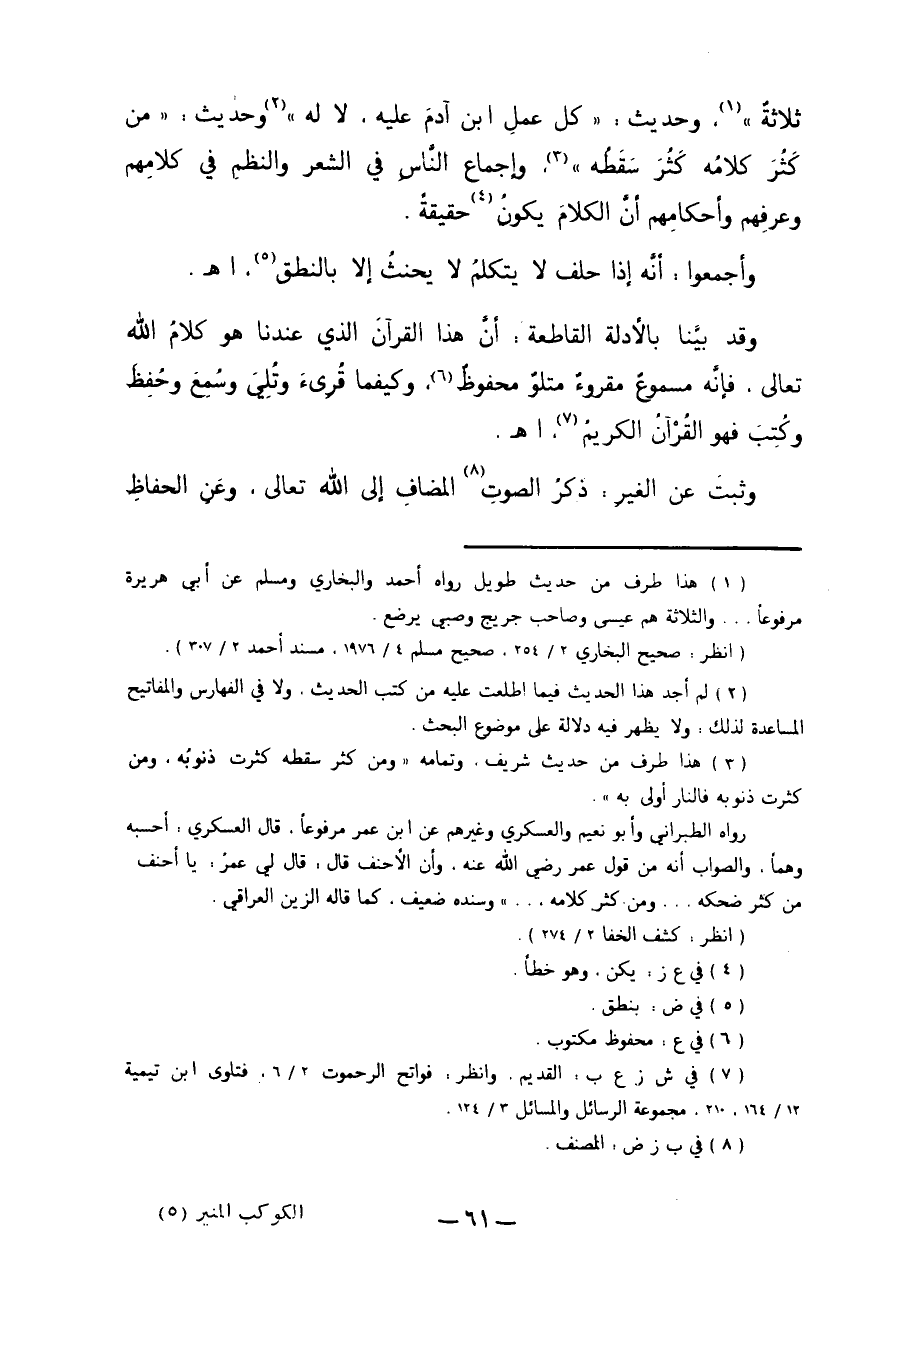 ثلاثةٌ »(١)، وحديث : « كل عملِ ابن آدمَ عليه ، لا له »(٢) وحديث : « من
كَثُرَ كلامُه كَثُرَ سَقَطُه »(٣)، وإجماع النَّاسِ في الشعر والنظمِ في كلامِهم
وعرفِهم وأحكامِهم أنَّ الكلامَ يكونُ(٤) حقيقةً .
وأجمعوا : أنَّه إذا حلف لا يتكلمُ لا يحنثُ إلا بالنطق(٥)، ا هـ .
وقد بيَّنا بالأدلة القاطعة : أنَّ هذا القرآنَ الذي عندنا هو كلامُ الله
تعالى ، فإنَّه مسموعٌ مقروءٌ متلوٌ محفوظٌ(٦)، وكيفما قُرِىءَ وتُلِيَ وسُمِعَ وحُفِظَ
وكُتِبَ فهو القُرْآنُ الكريمُ(٧)، ا هـ .
وثبتَ عن الغيرِ : ذكرُ الصوتِ(٨) المضافِ إلى الله تعالى ، وعَنِ الحفاظِ
( ١ ) هذا طرف من حديث طويل رواه أحمد والبخاري ومسلم عن أبي هريرة
مرفوعاً . . . والثلاثة هم عيسى وصاحب جريج وصبي يرضع .
( انظر : صحيح البخاري ٢ / ٢٥٤ ، صحيح مسلم ٤ / ١٩٧٦ ، مسند أحمد ٢ / ٣٠٧ ) .
( ٢ ) لم أجد هذا الحديث فيما اطلعت عليه من كتب الحديث ، ولا في الفهارس والمفاتيح
المساعدة لذلك ، ولا يظهر فيه دلالة على موضوع البحث .
( ٣ ) هذا طرف من حديث شريف ، وتمامه « ومن كثر سقطه كثرت ذنوبُه ، ومن
كثرت ذنوبه فالنار أولى به » .
رواه الطبراني وأبو نعيم والعسكري وغيرهم عن ابن عمر مرفوعاً ، قال العسكري : أحسبه
وهماً ، والصواب أنه من قول عمر رضي الله عنه ، وأن الأحنف قال : قال لي عمرُ : يا أحنف
من كثر ضحكه . . . ومن كثر كلامه . . . » وسنده ضعيف ، كما قاله الزين العراقي .
( انظر : كشف الخفا ٢ / ٢٧٤ ) .
( ٤ ) في ع ز : يكن ، وهو خطأ .
( ٥ ) في ض : بنطق .
( ٦ ) في ع : محفوظ مكتوب .
( ٧ ) في ش ز ع ب : القديم . وانظر : فواتح الرحموت ٢ / ٦ ، فتاوى ابن تيمية
١٢ / ١٦٤ ، ٢١٠ ، مجموعة الرسائل والمسائل ٣ / ١٢٤ .
( ٨ ) في ب ز ض : المصنف .
— ٦١ —
الكوكب المنير (٥)